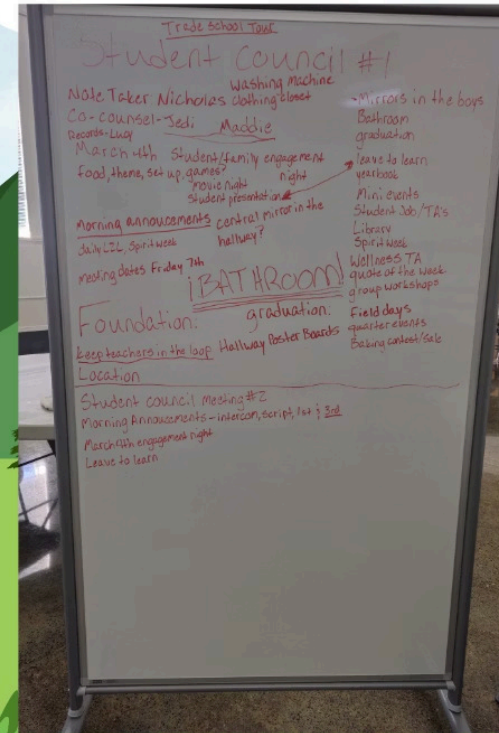 Trade School Tour
Student Council #1
Washing Machine
Note Taker Nicholas clothing closet
Co-counsel-Jedi Maddie
Records-Lucy
March 4th Student/family engagement night
food, theme, set up, games?
movie night
Student presentation
Morning annoucements central mirror in the hallway?
daily LZL, Spirit week
meeting dates Friday 7th
¡BATHROOM!
Foundation: graduation:
keep teachers in the loop Hallway Poster Boards
Location
-Mirrors in the boys
Bathroom
graduation
leave to learn
yearbook
Mini events
Student Job/TA's
Library
Spirit week
Wellness TA
quote of the week
group workshops
Field days
quarter events
Baking contest/sale
Student council Meeting #2
Morning Annoucements - intercom, script, 1st & 3rd
March 4th engagement night
Leave to learn